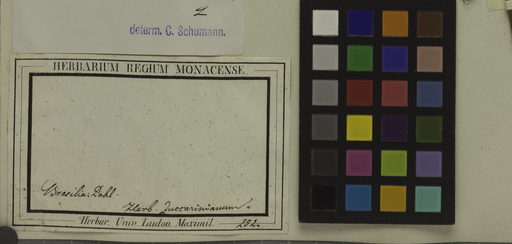 determ. C. Schumann.
HERBARIUM REGIUM MONACENSE
Brasilia. Pohl.
Herb. Zuccarinianum.
Herbar. Univ. Ludov. Maximil. 252.